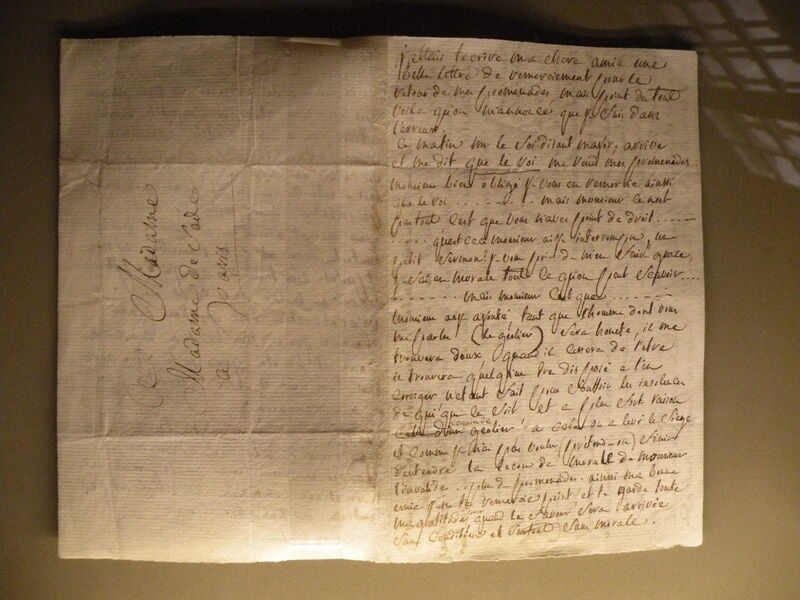 a Madame
Madame de Sade
a Paris
j'allais t'ecrire ma chere amie une
belle lettre de remerciement pour le
retour de mes promenades mais point du tout
voila qu'on m'annonce que je suis dans
l'erreur
ce matin mr le soi disant major arrive
et me dit que le roi me rend mes promenades
monsieur bien obligé je vous en remercie ainsi
que le roi - - - - - - - mais monsieur ce n'est
pas tout c'est que vous n'avez point de droit - - - -
- - - - qu'est ceci monsieur ai je interrompu, un
petit sermon je vous prie
je sais en morale tout ce qu'on peut scavoir - - -
- - - - - - - mais monsieur c'est que - - - - - - -
monsieur ai je ajouté tant que l'homme dont vous
me parlez (le geolier) sera honete, il me
trouvera doux quand il cessera de l'etre
il trouvera quelqu'un tres disposé a l'en
corriger n'etant fait pour souffrir les insolences
de qui que ce soit et a plus forte raison
celle d'un coquin de geolier a cela on a levé le siege
et comme je n'ai pas voulu (pretend-on) finir
d'entendre la lecon de morale de monsieur
l'invalide plus de promenades. ainsi ma bonne
amie je ne te remercie point et te garde toute
ma gratitude quand la faveur sera arrivée
sans conditions et surtout sans morale.